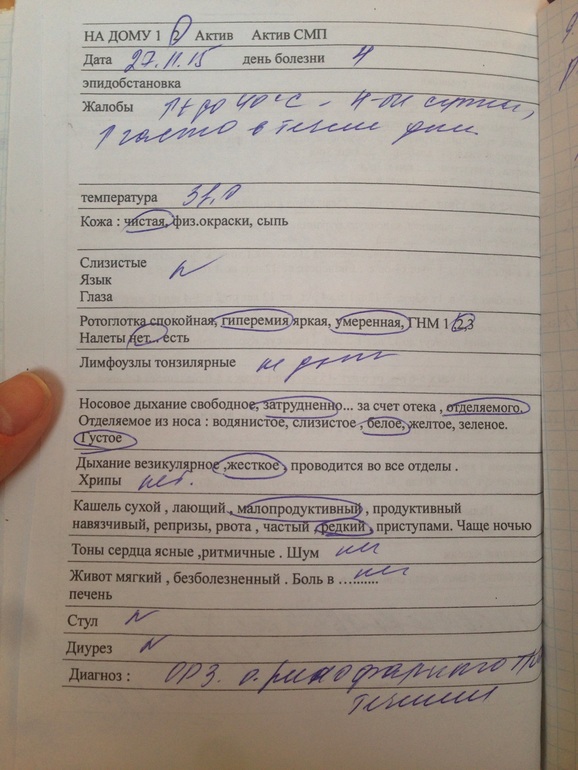 НА ДОМУ 1 2 Актив Актив СМП
Дата 27.11.15 день болезни 4
эпидобстановка
Жалобы ↑t до 40°С - 4-ые сутки,
часто в течение дня.
температура
Кожа : чистая, физ.окраски, сыпь
Слизистые
Язык N
Глаза
Ротоглотка спокойная, гиперемия яркая, умеренная, ГНМ 1,2,3
Налеты нет... есть
Лимфоузлы тонзилярные не
Носовое дыхание свободное, затрудненно... за счет отека , отделяемого.
Отделяемое из носа : водянистое, слизистое , белое, желтое, зеленое.
Густое
Дыхание везикулярное ,жесткое , проводится во все отделы .
Хрипы нет.
Кашель сухой , лающий , малопродуктивный , продуктивный
навязчивый, репризы, рвота , частый , редкий , приступами. Чаще ночью
Тоны сердца ясные ,ритмичные . Шум нет
Живот мягкий , безболезненный . Боль в ........... нет
печень
Стул N
Диурез N
Диагноз : ОРЗ. о. ринофарингит
течение